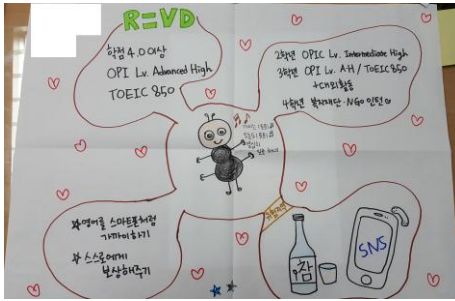 R=VD
학점 4.0 이상
OPI Lv. Advanced High
TOEIC 850
2학년 OPIC Lv. Intermediate High
3학년 OPI Lv. A-H / TOEIC 850
+대외활동
4학년 복지재단·NGO 인턴
영어를 스마트폰처럼
가까이하기
스스로에게
보상해주기
참
SNS